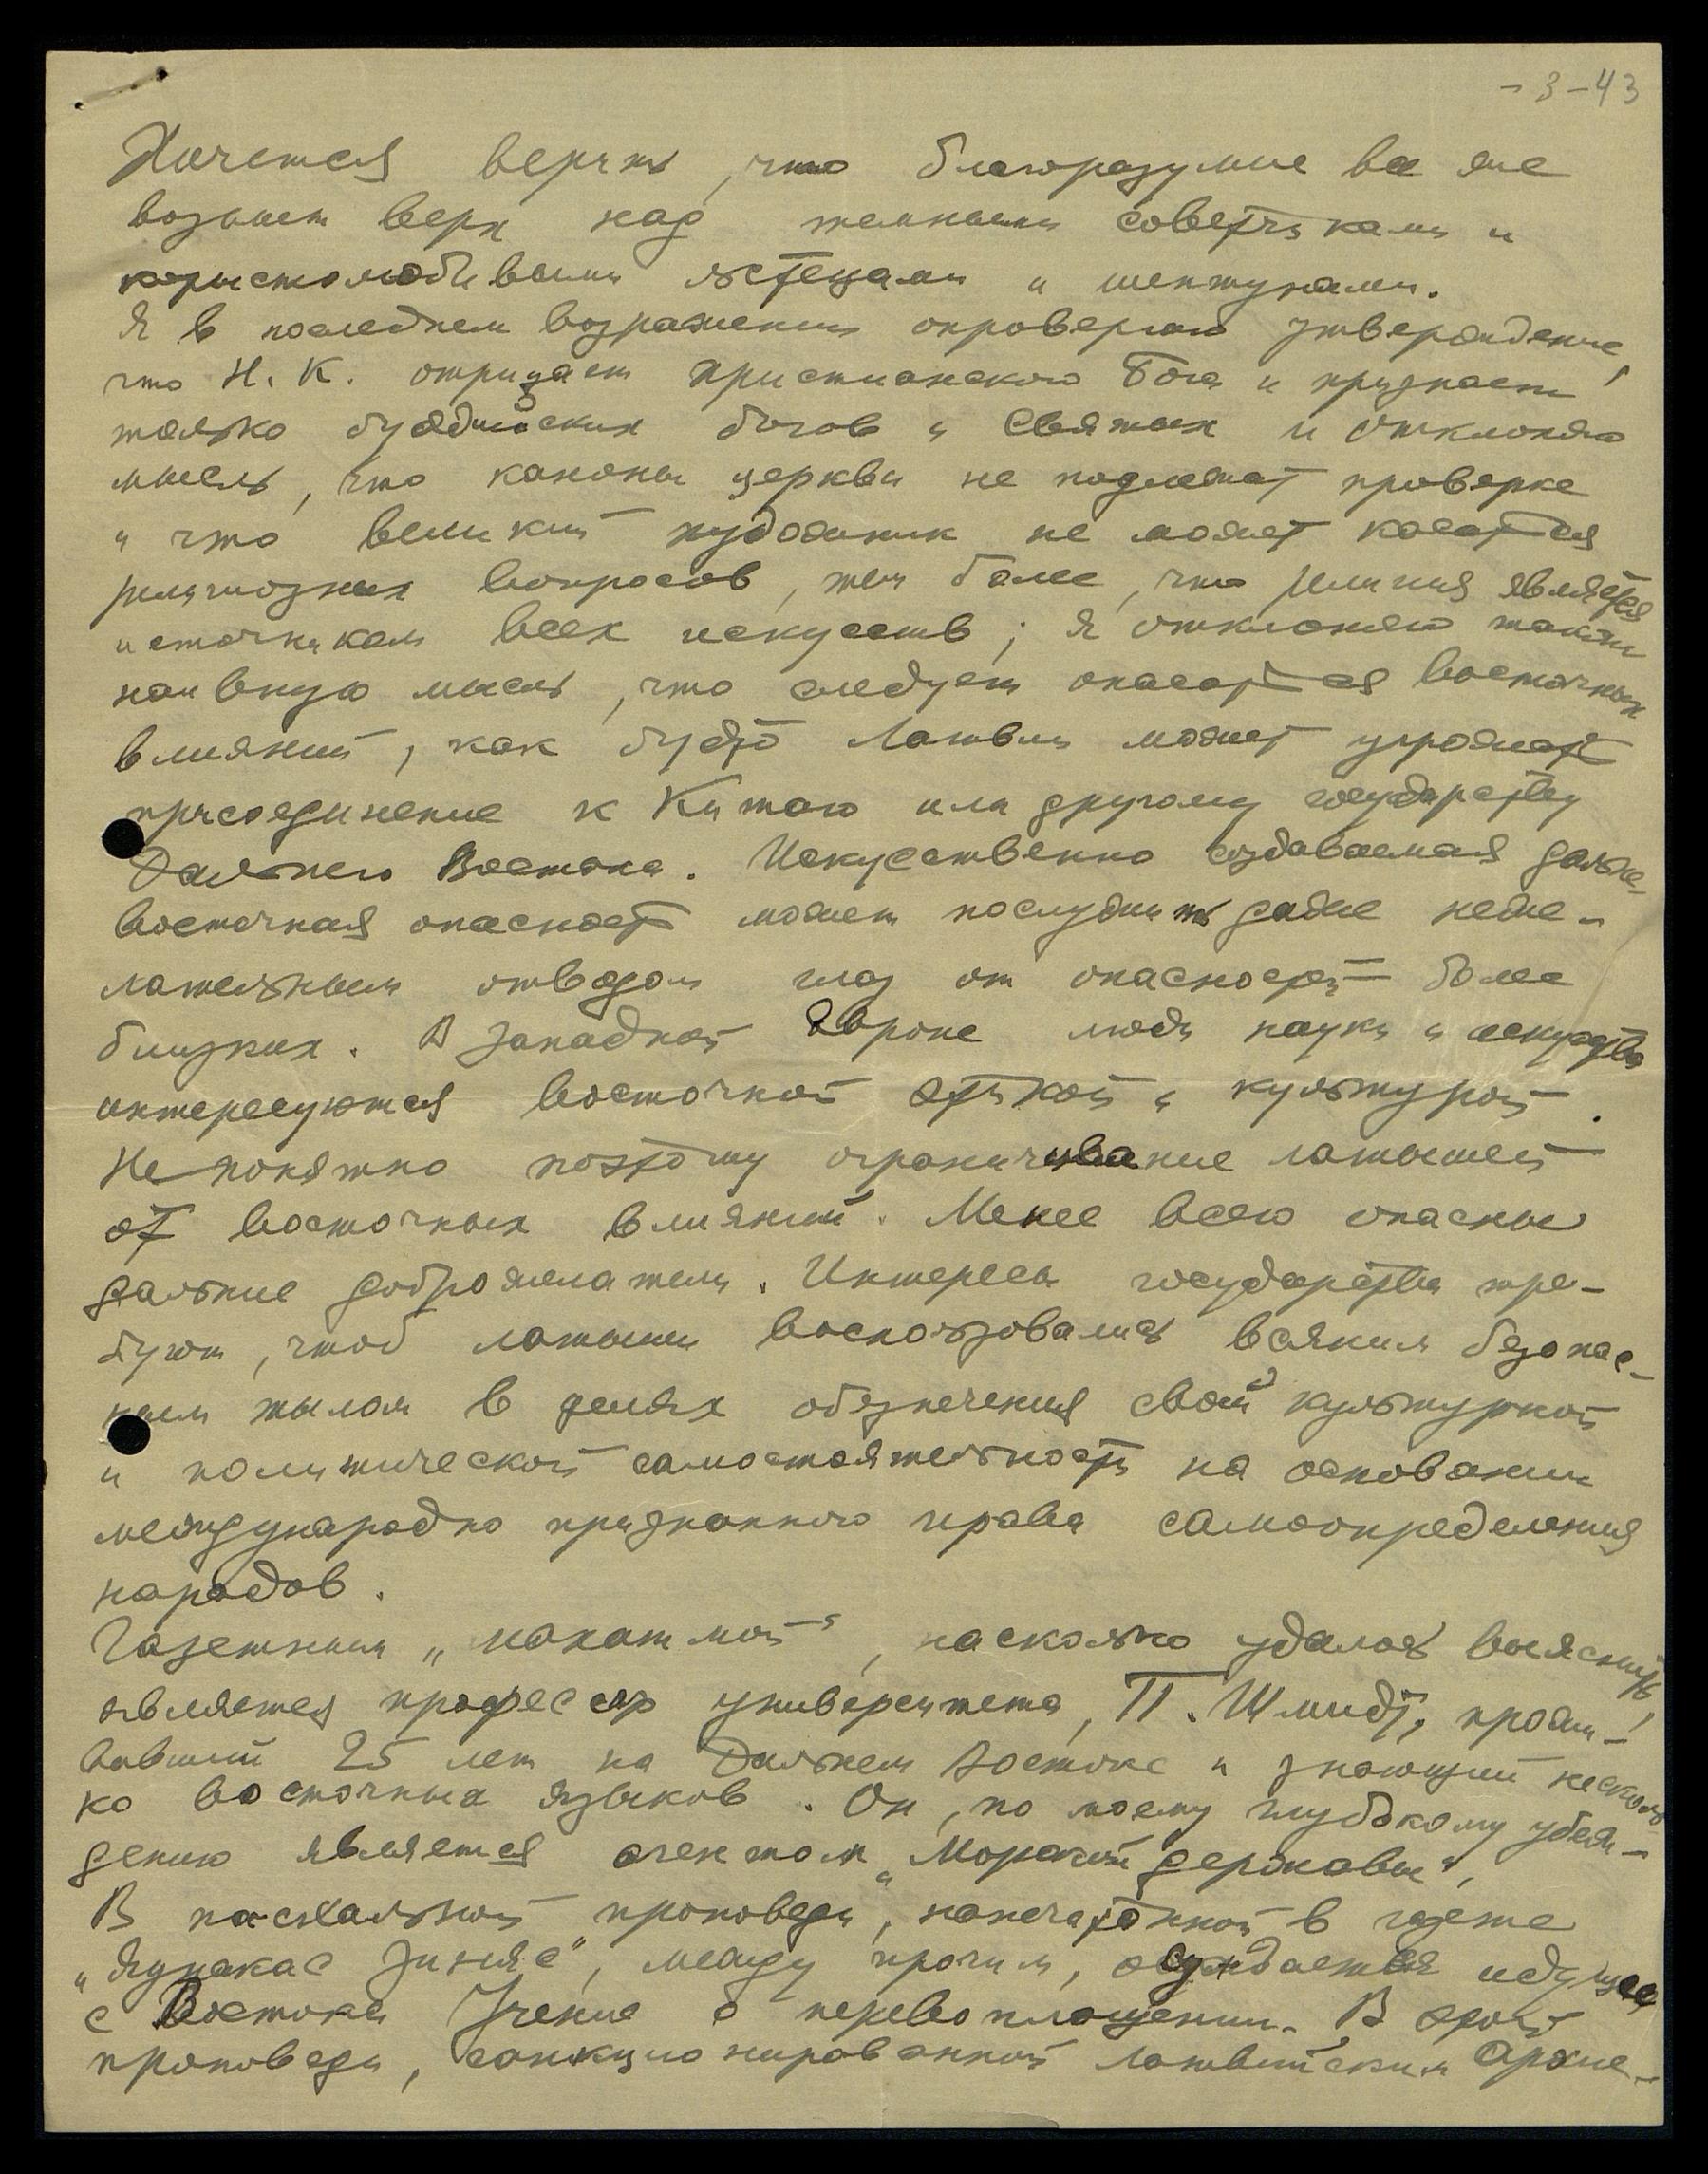 - 3 - 43
Хочется верить, что благоразумие все же
возьмет верх над темными советчиками и
корыстолюбивыми льстецами и шептунами.
Я в последнем возражении опровергаю утверждение,
что Н. К. отрицает христианского Бога и признает
только буддийских богов и святых и отклоняю
мысль, что каноны церкви не подлежат проверке
и что великий художник не может касаться
религиозных вопросов, тем более, что религия является
источником всех искусств; я отклоняю также
наивную мысль, что следует опасаться восточных
влияний, как будто Латвии может угрожать
присоединение к Китаю или другому государству
Дальнего Востока. Искусственно создаваемая дальне-
восточная опасность может послужить даже неже-
лательным отводом глаз от опасностей более
близких. В западной Европе люди науки и искусства
интересуются восточной этикой и культурой.
Непонятно поэтому ограничивание латышей
от восточных влияний. Менее всего опасны
дальние доброжелатели. Интересы государства тре-
буют, чтоб латыши воспользовались всяким безопас-
ным тылом в целях обезпечения своей культурной
и политической самостоятельности на основании
международно признанного права самоопределения
народов.
Газетным „махатмой", насколько удалось выяснить,
является профессор университета, П. Шмидт, прожи-
вавший 25 лет на Дальнем Востоке и знающий несколь-
ко восточных языков. Он, по моему глубокому убеж-
дению является агентом „Морской державы",
В пасхальной проповеди, напечатанной в газете
„Яунакас Зиняс", между прочим, осуждается идущее
с Востока Учение о перевоплощении. В этой
проповеди, санкционированной латвийским Архие-